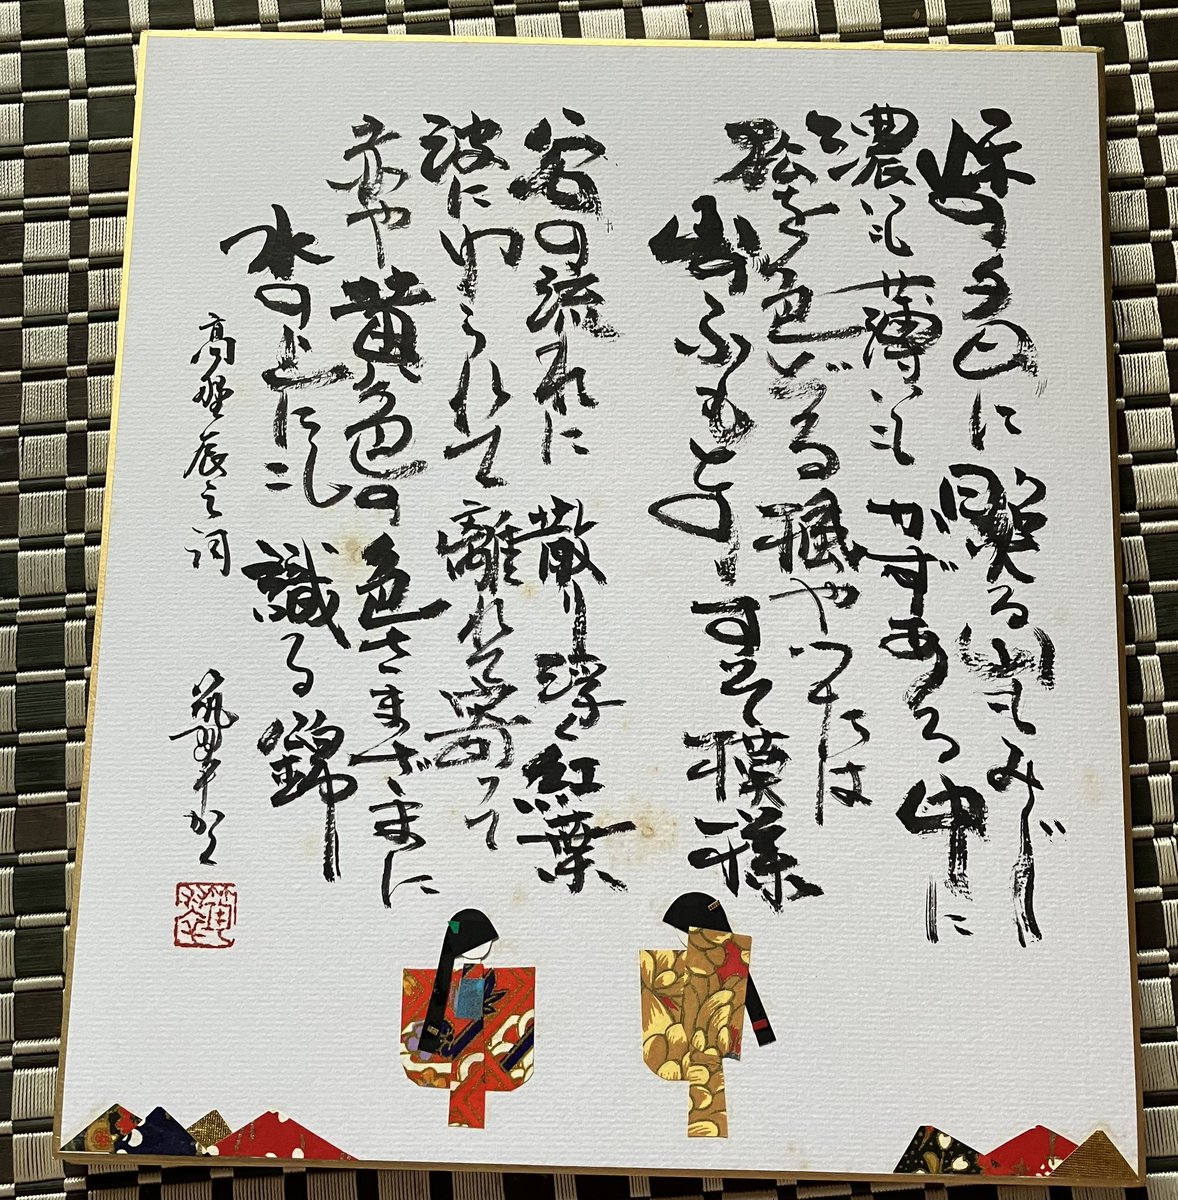 秋の夕日に照る山もみじ
濃いも薄いもかずある中に
松を色どる楓やつたは
山のふもとのすそ模様
谷の流れに散り浮く紅葉
波にゆられて離れて寄って
赤や黄色の色さまざまに
水の上にも織る錦
高野辰之詞
かく